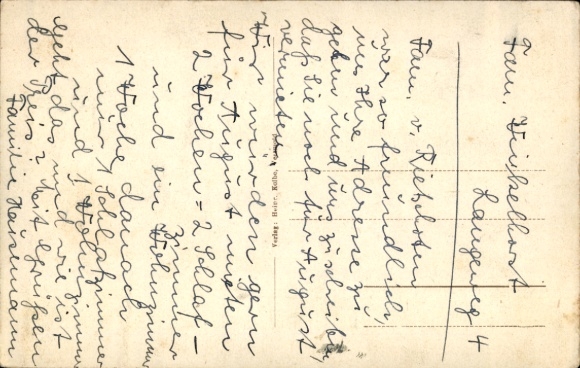 Fam. Winkelhorst
Langeweg 4
Fam. v. Rietschoten
war so freundlich,
uns Ihre Adresse zu
geben und uns zu schreiben,
daß Sie noch für August
vermieten
Wir würden gern
für August mieten
2 Wochen = 2 Schlaf-
zimmer
und ein Wohnzimmer
1 Woche danach
nur 1 Schlafzimmer
und 1 Wohnzimmer
Geht das und wie ist
der Preis? Mit Grüßen
Familie Hausmann
Verlag: Heinr. Kolbe,